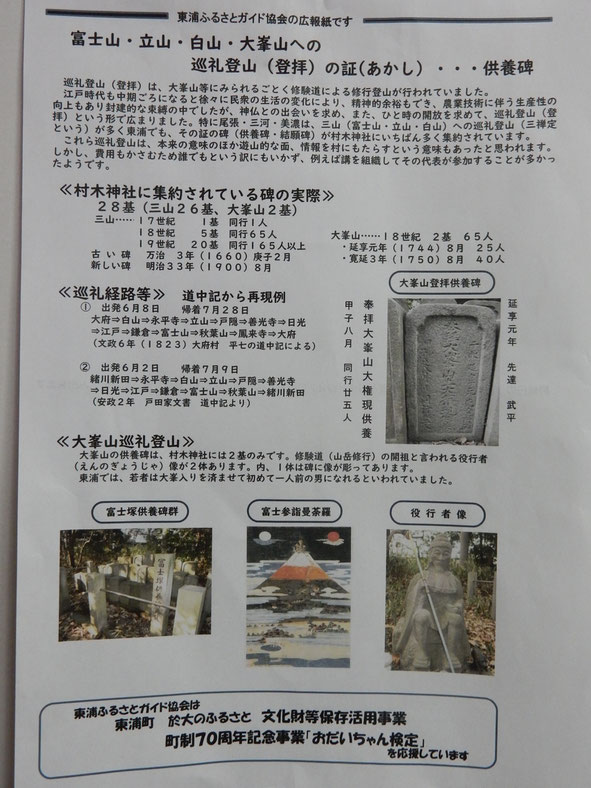 東浦ふるさとガイド協会の広報紙です
富士山・立山・白山・大峯山への
巡礼登山（登拝）の証(あかし）・・・供養碑
巡礼登山（登拝）は、大峯山等にみられるごとく修験道による修行登山が行われていました。
江戸時代も中期ごろになると徐々に民衆の生活の変化により、精神的余裕もでき、農業技術に伴う生産性の
向上もあり封建的な束縛の中でしたが、神仏との出会いを求め、また、ひと時の開放を求めて、巡礼登山（登
拝）という形で広まりました。特に尾張・三河・美濃は、三山（富士山・立山・白山）への巡礼登山（三禅定
という）が多く東浦でも、その証の碑（供養碑・結願碑）が村木神社にいちばん多く集約されています。
これら巡礼登山は、本来の意味のほか遊山的な面、情報を村にもたらすという意味もあったと思われます。
しかし、費用もかさむため誰でもという訳にもいかず、例えば講を組織してその代表が参加することが多かっ
たようです。
≪村木神社に集約されている碑の実際≫
２８基（三山２６基、大峯山２基）
三山……１７世紀 １基 同行１人
１８世紀 ５基 同行６５人
１９世紀 ２０基 同行１６５人以上
古い碑 万治 ３年（１６６０）庚子２月
新しい碑 明治３３年（１９００）８月
大峯山……１８世紀 ２基 ６５人
・延享元年（１７４４）８月 ２５人
・寛延３年（１７５０）８月 ４０人
≪巡礼経路等≫ 道中記から再現例
① 出発６月８日 帰着７月２８日
大府⇒白山⇒永平寺⇒立山⇒戸隠⇒善光寺⇒日光
⇒江戸⇒鎌倉⇒富士山⇒秋葉山⇒鳳来寺⇒大府
（文政６年（１８２３）大府村 平七の道中記による）
② 出発６月２日 帰着７月９日
緒川新田⇒永平寺⇒白山⇒立山⇒戸隠⇒善光寺
⇒日光⇒江戸⇒鎌倉⇒富士山⇒秋葉山⇒緒川新田
（安政２年 戸田家文書 道中記より）
大峯山登拝供養碑
延享元年 先達 武平
奉拝大峯山大権現供養
甲子八月 同行廿五人
≪大峯山巡礼登山≫
大峯山の供養碑は、村木神社には２基のみです。修験道（山岳修行）の開祖と言われる役行者
（えんのぎょうじゃ）像が２体あります。内、１体は碑に像が彫ってあります。
東浦では、若者は大峯入りを済ませて初めて一人前の男になれるといわれていました。
富士塚供養碑群
富士参詣曼荼羅
役行者像
東浦ふるさとガイド協会は
東浦町 於大のふるさと 文化財等保存活用事業
町制７０周年記念事業「おだいちゃん検定」
を応援しています